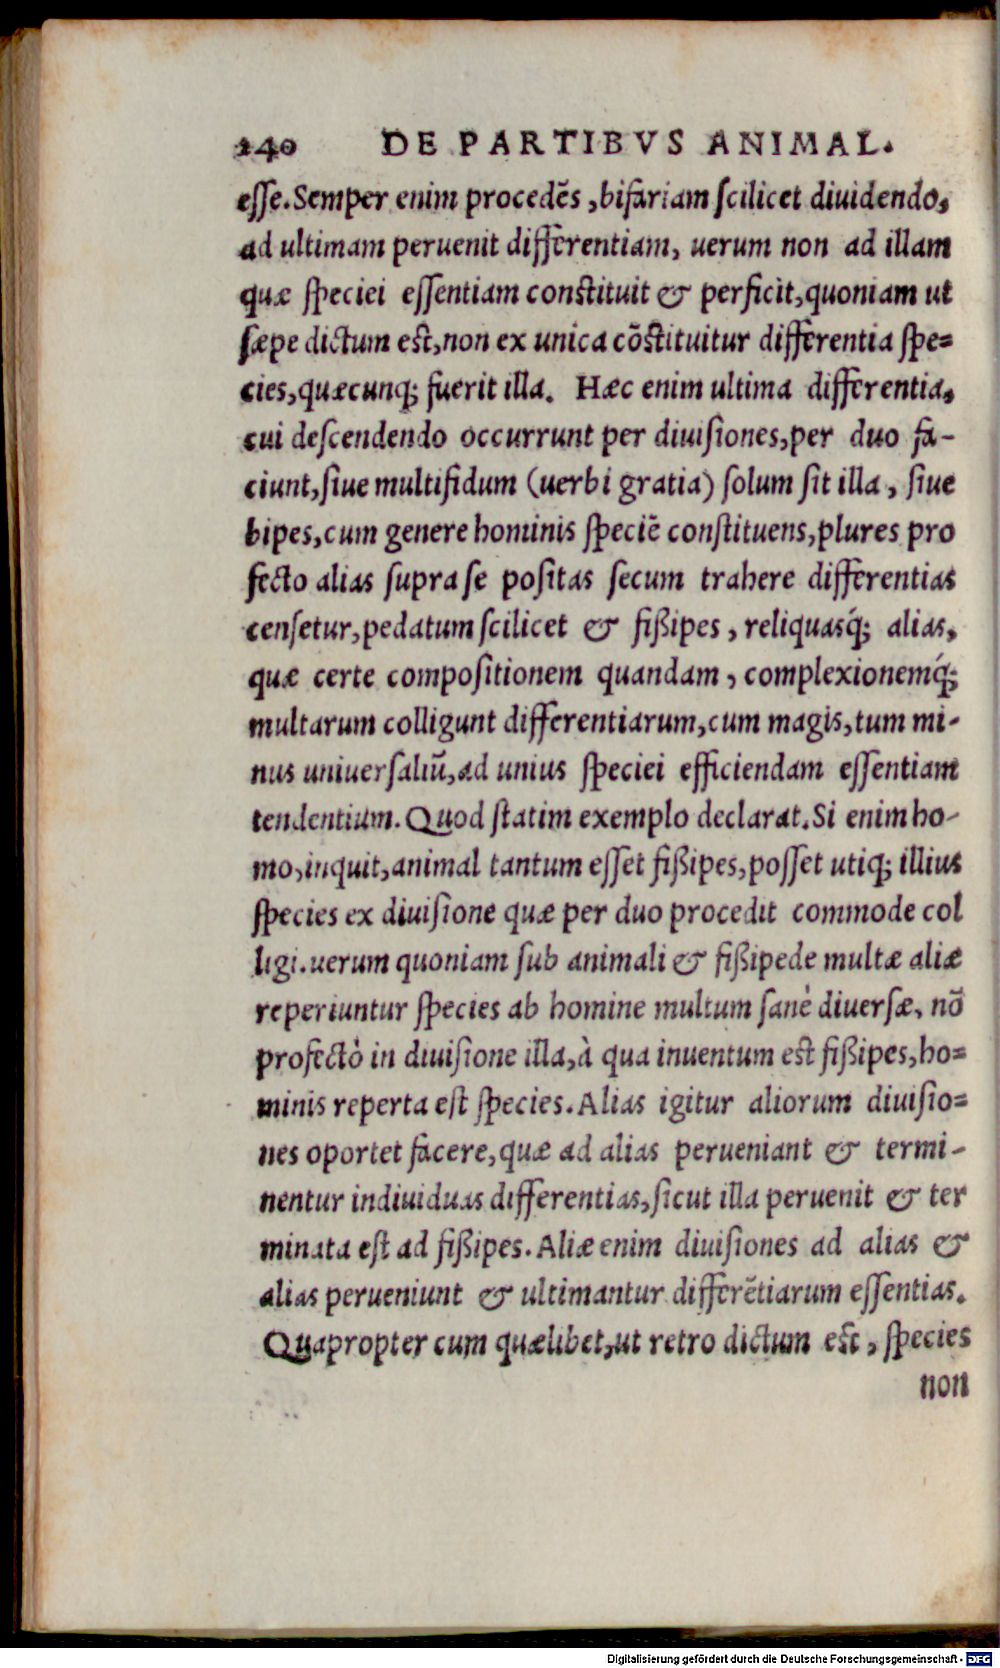 240 DE PARTIBVS ANIMAL.
esse. Semper enim procedẽs, bifariam scilicet diuidendo,
ad ultimam peruenit differentiam, uerum non ad illam
quæ speciei essentiam constituit & perficit, quoniam ut
sæpe dictum est, non ex unica cõstituitur differentia spe=
cies, quæcunq; fuerit illa. Hæc enim ultima differentia,
cui descendendo occurrunt per diuisiones, per duo fa-
ciunt, siue multifidum (uerbi gratia) solum sit illa, siue
bipes, cum genere hominis speciẽ constituens, plures pro
fecto alias supra se positas secum trahere differentias
censetur, pedatum scilicet & fißipes, reliquasq́; alias,
quæ certe compositionem quandam, complexionemq́;
multarum colligunt differentiarum, cum magis, tum mi-
nus uniuersaliũ, ad unius speciei efficiendam essentiam
tendentium. Quod statim exemplo declarat. Si enim ho-
mo, inquit, animal tantum esset fißipes, posset utiq; illius
species ex diuisione quæ per duo procedit commode col
ligi. uerum quoniam sub animali & fißipede multæ aliæ
reperiuntur species ab homine multum sanè diuersæ, nõ
profectò in diuisione illa, à qua inuentum est fißipes, ho=
minis reperta est species. Alias igitur aliorum diuisio=
nes oportet facere, quæ ad alias perueniant & termi-
nentur indiuiduas differentias, sicut illa peruenit & ter
minata est ad fißipes. Aliæ enim diuisiones ad alias &
alias perueniunt & ultimantur differẽtiarum essentias.
Quapropter cum quælibet, ut retro dictum est, species
non
Digitalisierung gefördert durch die Deutsche Forschungsgemeinschaft - DFG